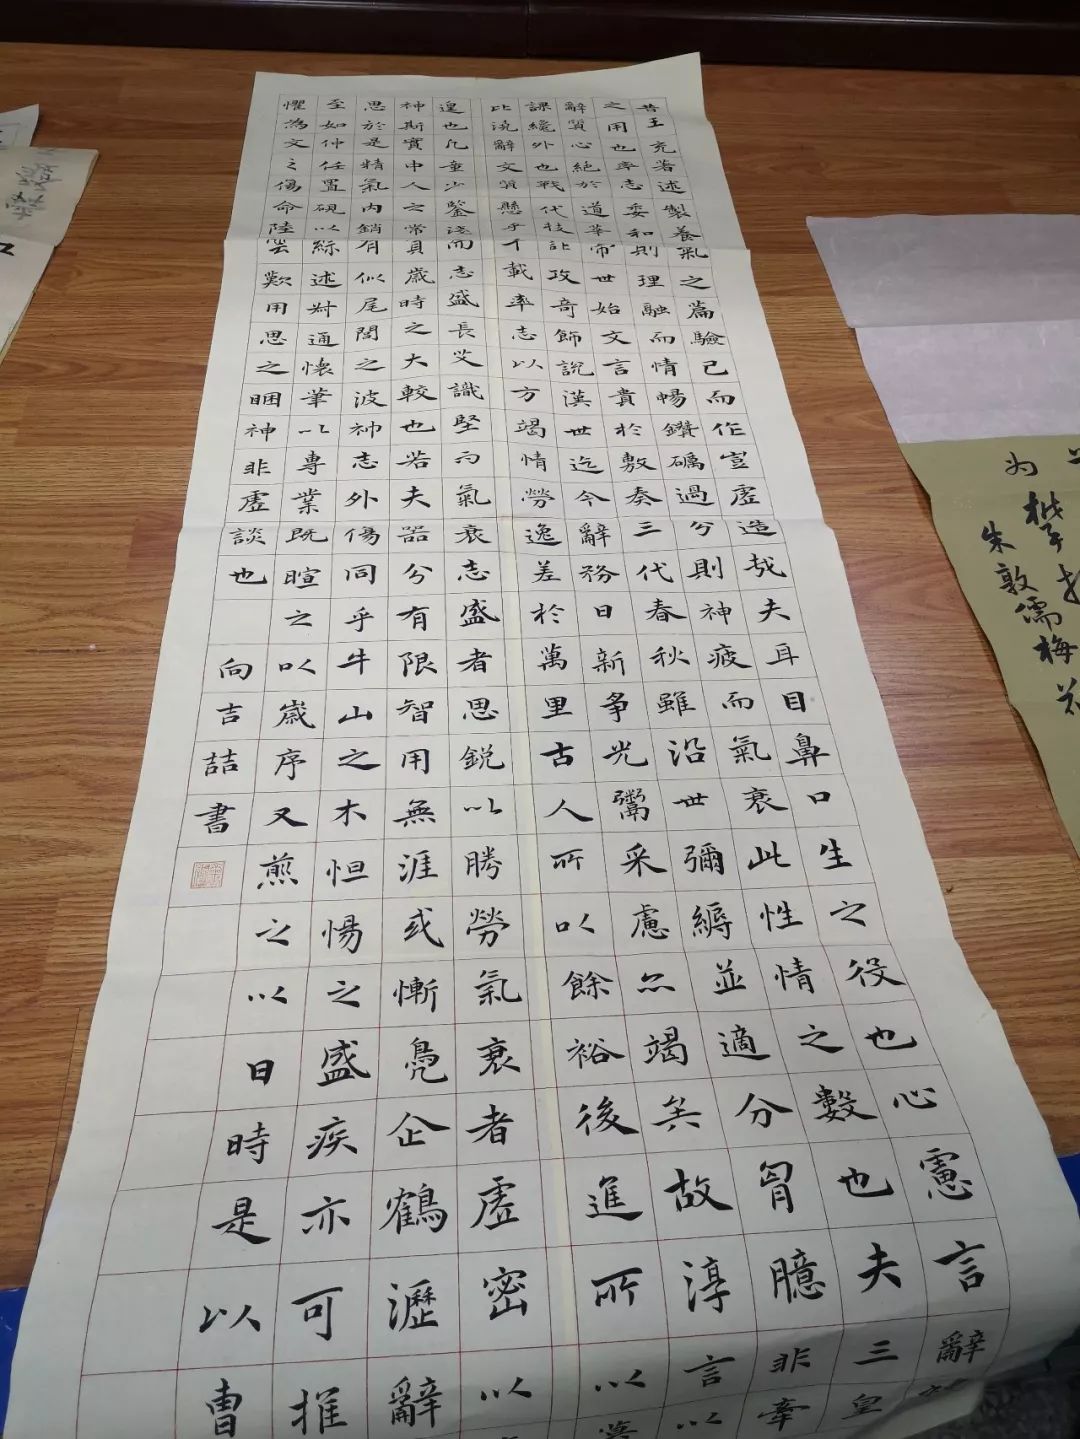 昔王充著述製養氣之篇驗己而作豈虛造哉夫耳目鼻口生之役也心慮言辭
之用也率志委和則理融而情暢鑽礪過分則神疲而氣衰此性情之數也夫三皇
辭質心絕於道華帝世始文言貴於敷奏三代春秋雖沿世彌縟並適分胷臆非牽
課纔外也戰代技詐攻奇飾說漢世迄今辭務日新爭光鬻采慮亦竭矣故淳言以
比澆辭文質懸乎千載率志以方竭情勞逸差於萬里古人所以餘裕後進所以莫
遑也凡童少鑒淺而志盛長艾識堅而氣衰志盛者思銳以勝勞氣衰者慮密以
神斯實中人之常資歲時之大較也若夫器分有限智用無涯或慚鳧企鶴瀝辭
思於是精氣內銷有似尾閭之波神志外傷同乎牛山之木怛惕之盛疾亦可推
至如仲任置硯以綜述叔通懷筆以專業既暄之以歲序又煎之以日時是以曹
懼為文之傷命陸雲歎用思之睏神非虛談也 向吉喆書
为
攀
朱敦儒梅